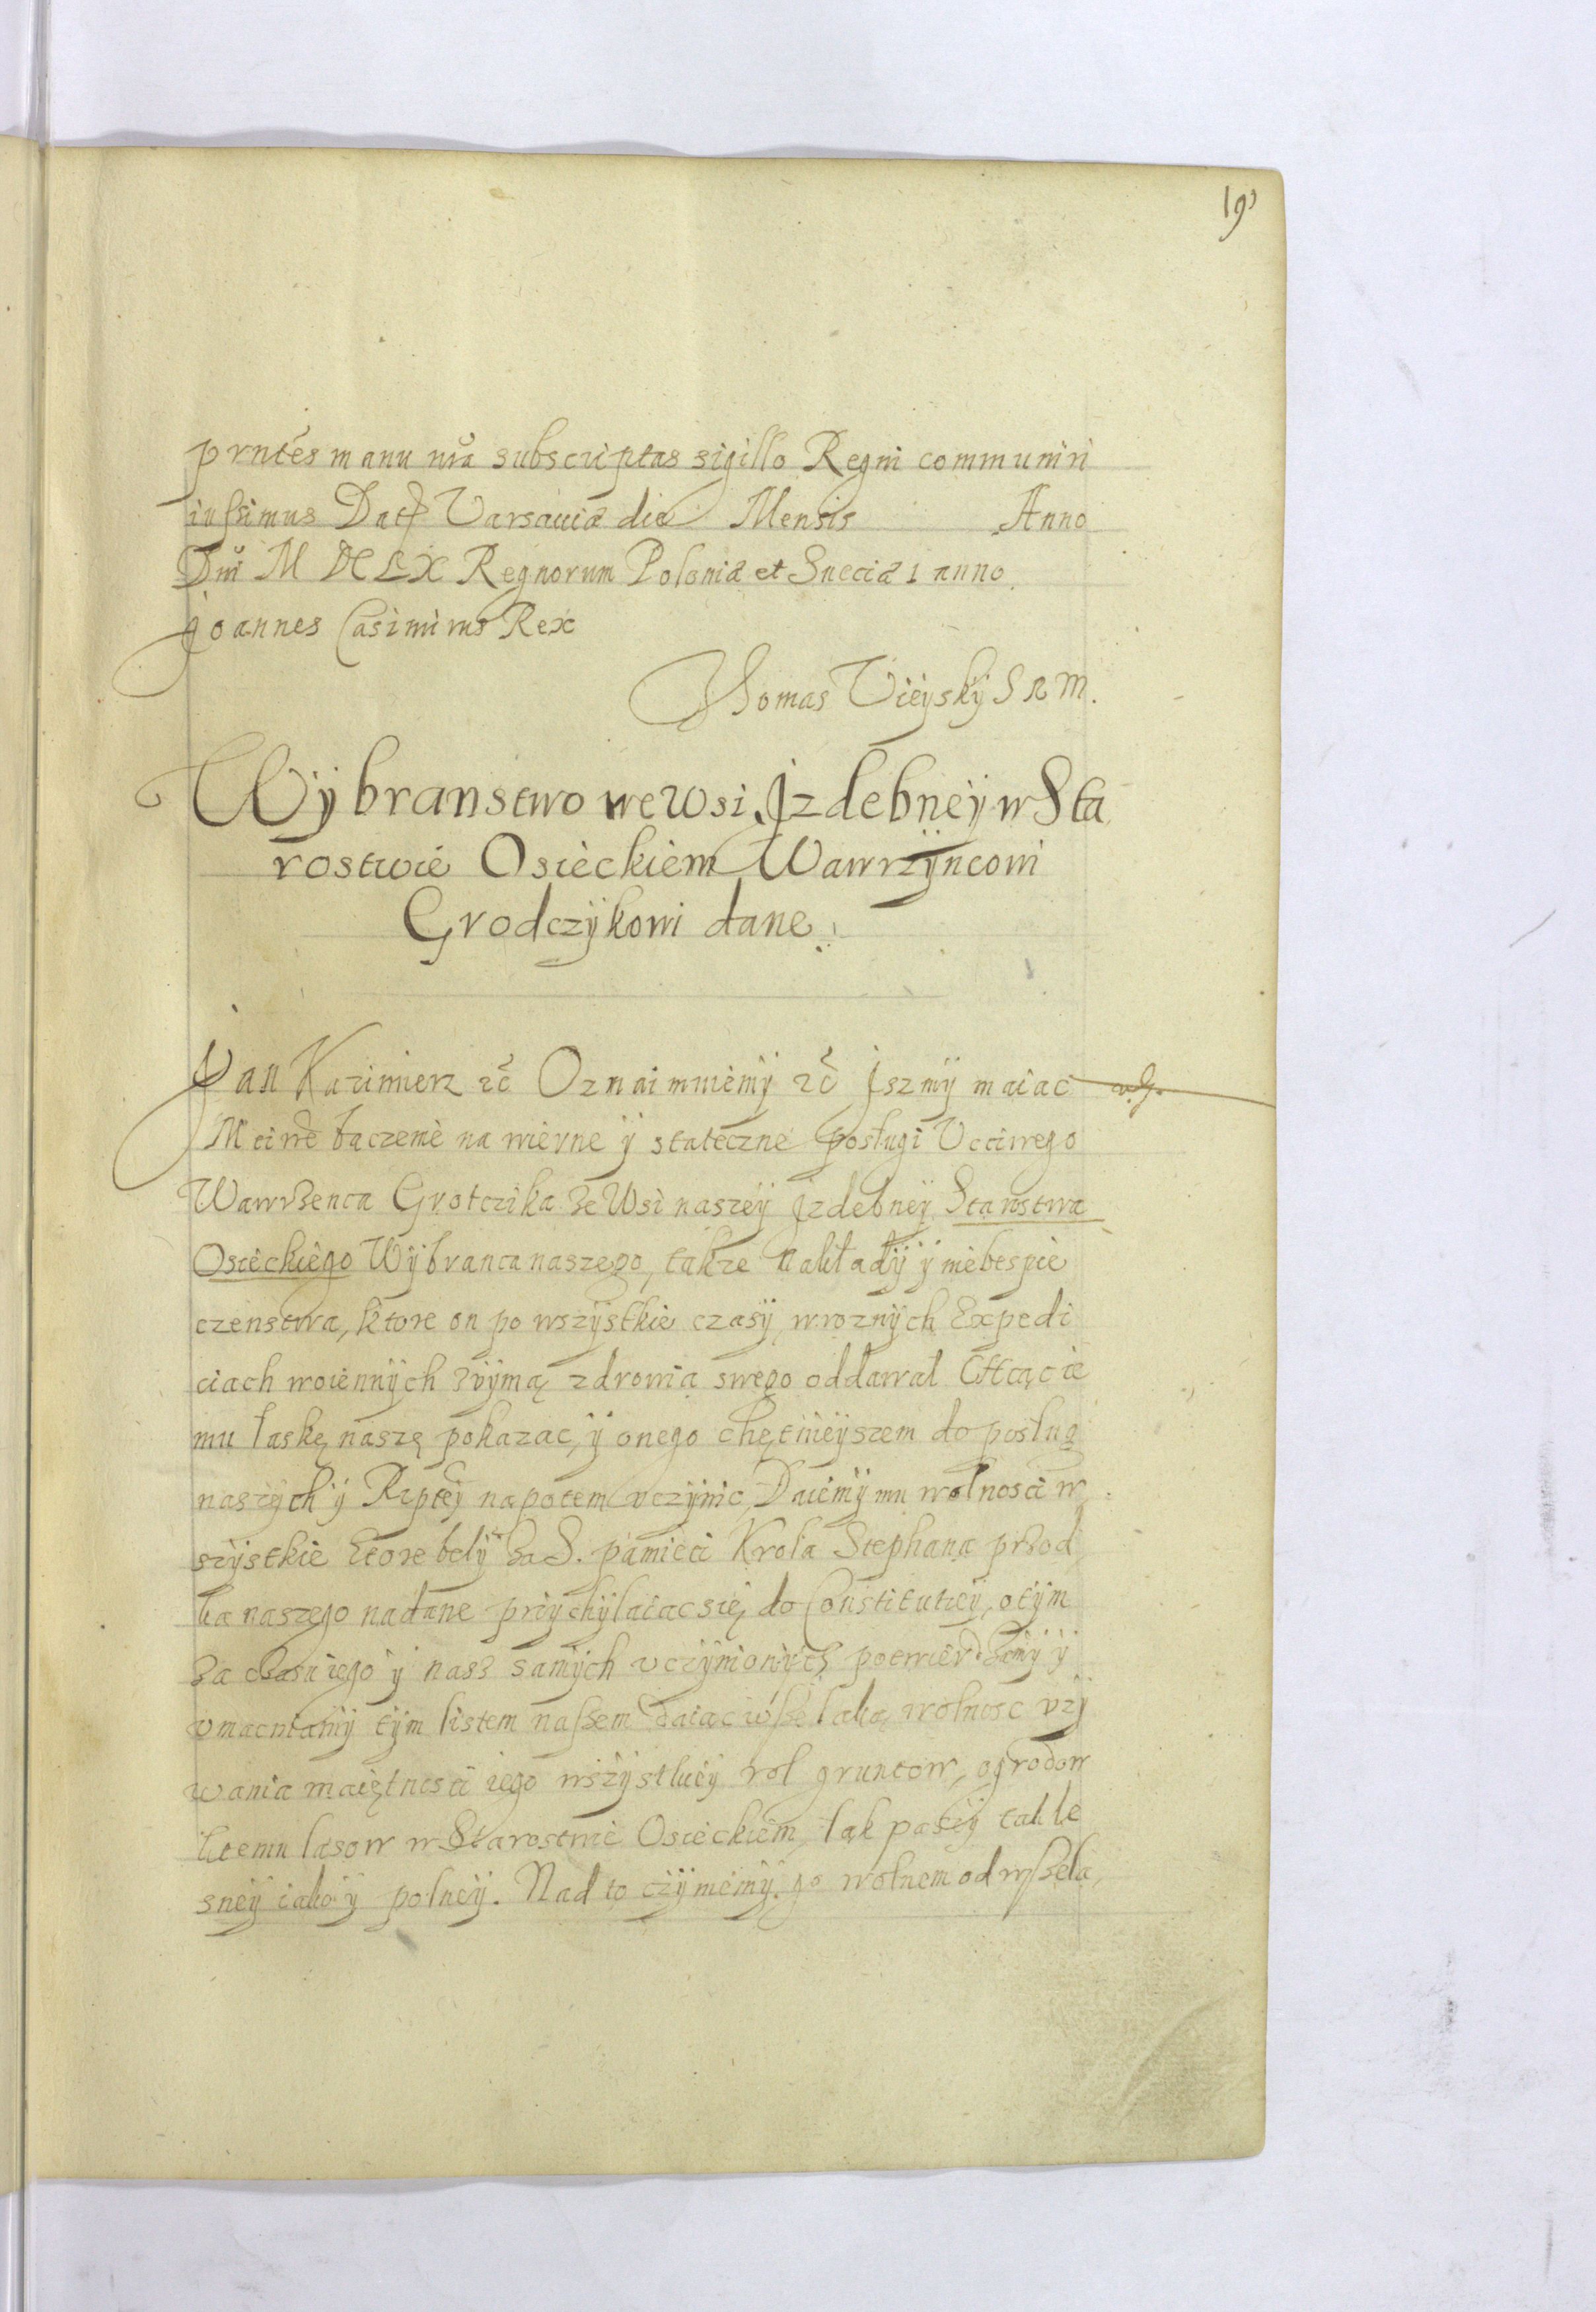 19
prntes manu nra subscriptas sigillo Regni communiri
iussimus Dat Varsaviæ die Mensis Anno
Dni M DC LX Regnorum Poloniæ et Sueciæ 1 anno
Joannes Casimirus Rex
Thomas Vieysky S R M.
Wybranstwo we Wsi Jzdebney w Sta
rostwie Osieckiem Wawrzyncowi
Grodczykowi dane
Jan Kazimierz etc Oznaimuiemy etc Jszmy maiac
baczenie na wierne y stateczne posługi Vcciwego
Wawrzenca Grotczika ze Wsi naszey Jzdebney Starostwa
Osieckiego Wybranca naszego, także nakłady y niebespie
czenstwa, ktore on po wszystkie czasy w roznych Expedi
ciach woiennych zuymą zdrowia swego oddawal Chcąc ie
mu łaskę naszę pokazac, y onego chętnieyszem do posług
naszych y Rzptey napotem vczynic, Daiemy mu wolnosci w
szystkie ktore bely za S. pamieci Krola Stephana przod
ka naszego nadane przychylaiac się do Constitutiey, o tym
za czasu iego y nas samych vczynionych potwierdzamy y
vmacniamy tym listem naszem daiąc wszelaką wolnosc vzy
wania maiętnosci iego wszystkiey rol gruntow, ogrodow
ktemu lasow w Starostwie Osieckiem, łąk pasey tak le
sney iako y polney. Nad to czyniemy go wolnem od wszela